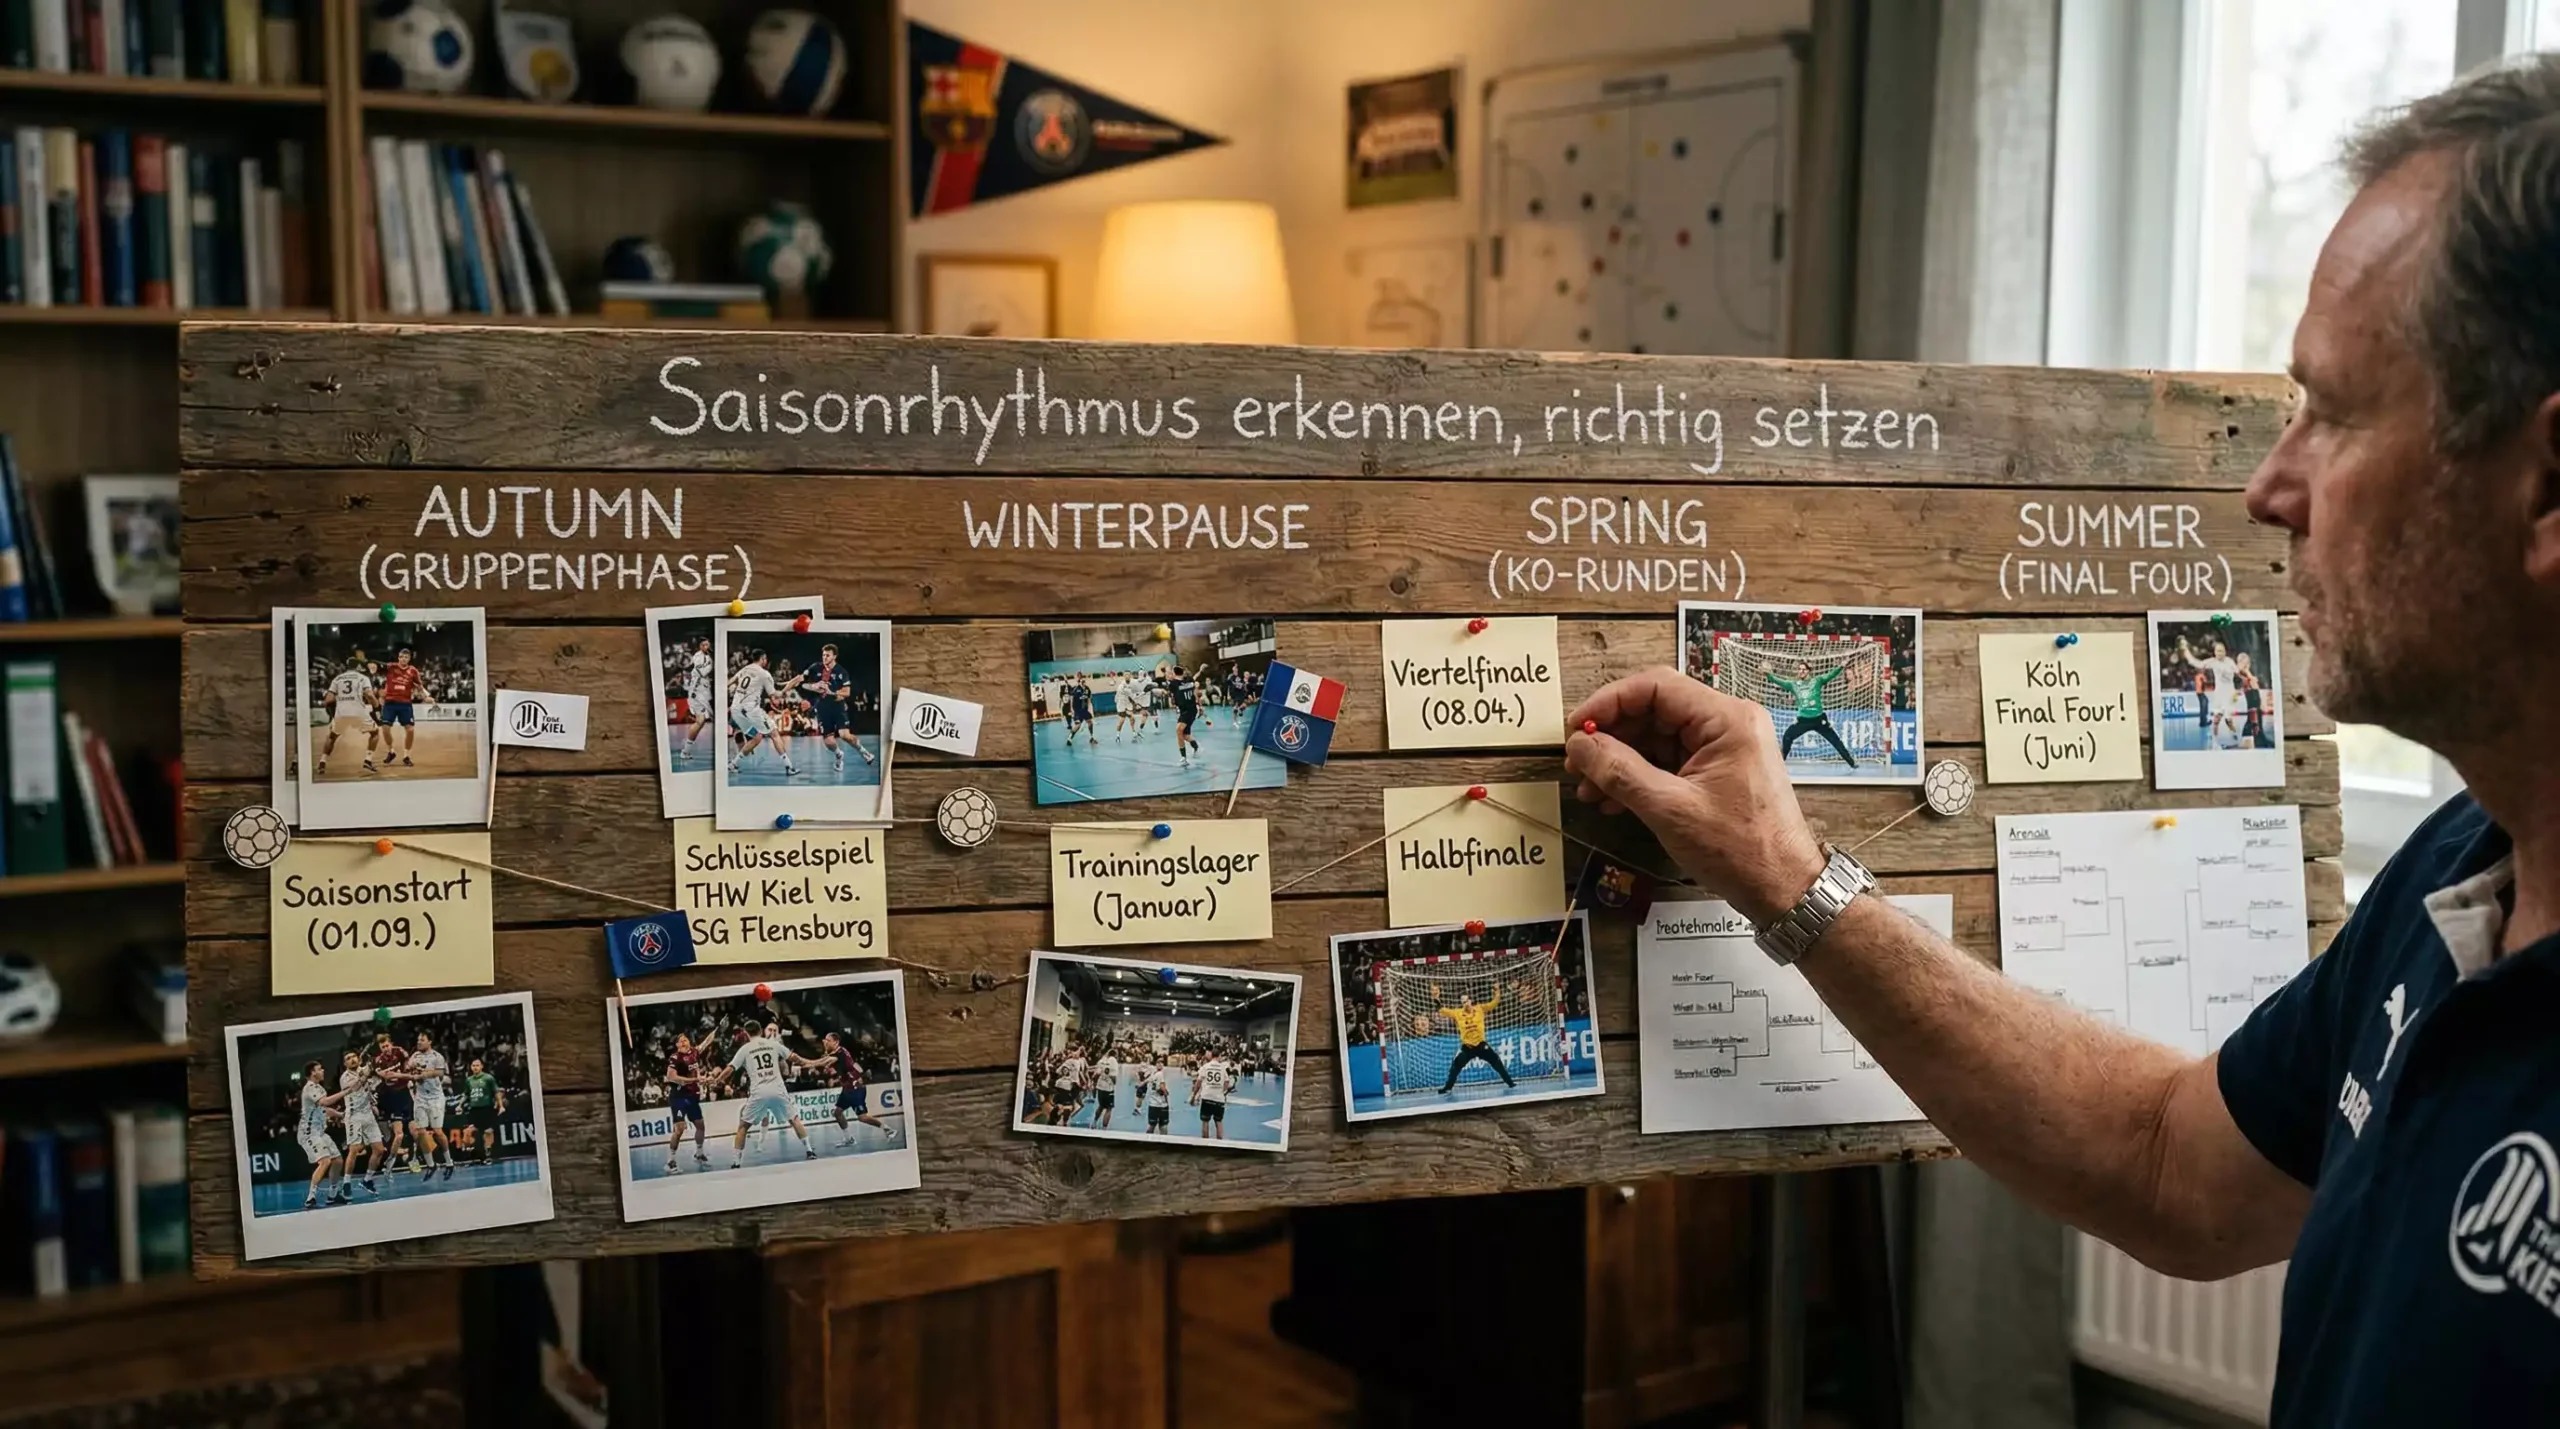 Saisonrhythmus erkennen, richtig setzen
AUTUMN
(GRUPPENPHASE)
WINTERPAUSE
SPRING
(KO-RUNDEN)
SUMMER
(FINAL FOUR)
THW
KIEL
THW
KIEL
Viertelfinale
(08.04.)
Köln
Final Four!
(Juni)
Saisonstart
(01.09.)
Schlüsselspiel
THW Kiel vs.
SG Flensburg
Trainingslager
(Januar)
Halbfinale
3
19
SG
EN
LIN
ahal
THW
KIEL